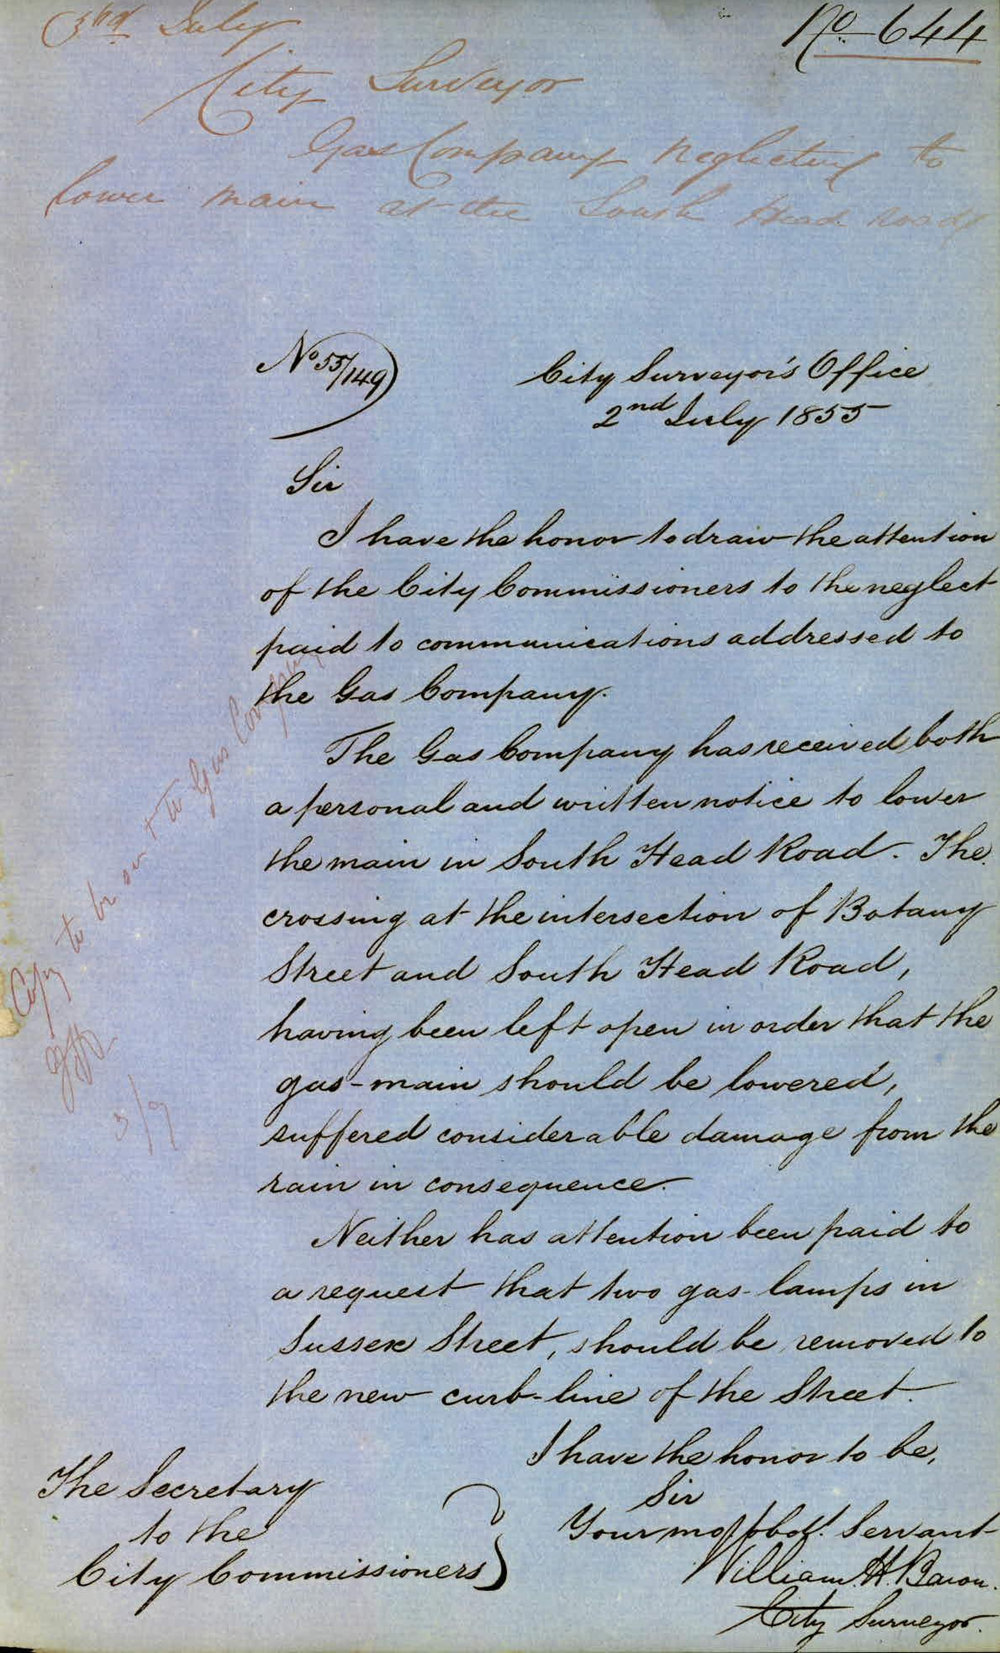 3rd July
No 644
City Surveyor
Gas Company neglecting to
lower main at the South Head road
No 55/149
City Surveyor's Office
2nd July 1855
Sir
I have the honor to draw the attention
of the City Commissioners to the neglect
paid to communications addressed to
the Gas Company.
The Gas Company has received both
a personal and written notice to lower
the main in South Head Road. The
crossing at the intersection of Botany
Street and South Head Road,
having been left open in order that the
gas-main should be lowered,
suffered considerable damage from the
rain in consequence.
Neither has attention been paid to
a request that two gas-lamps in
Sussex Street, should be removed to
the new curb-line of the Street.
I have the honor to be,
Sir
Your most obdt. Servant
William H. Baron.
City Surveyor.
The Secretary
to the
City Commissioners
Copy to be sent to Gas Company
3/9